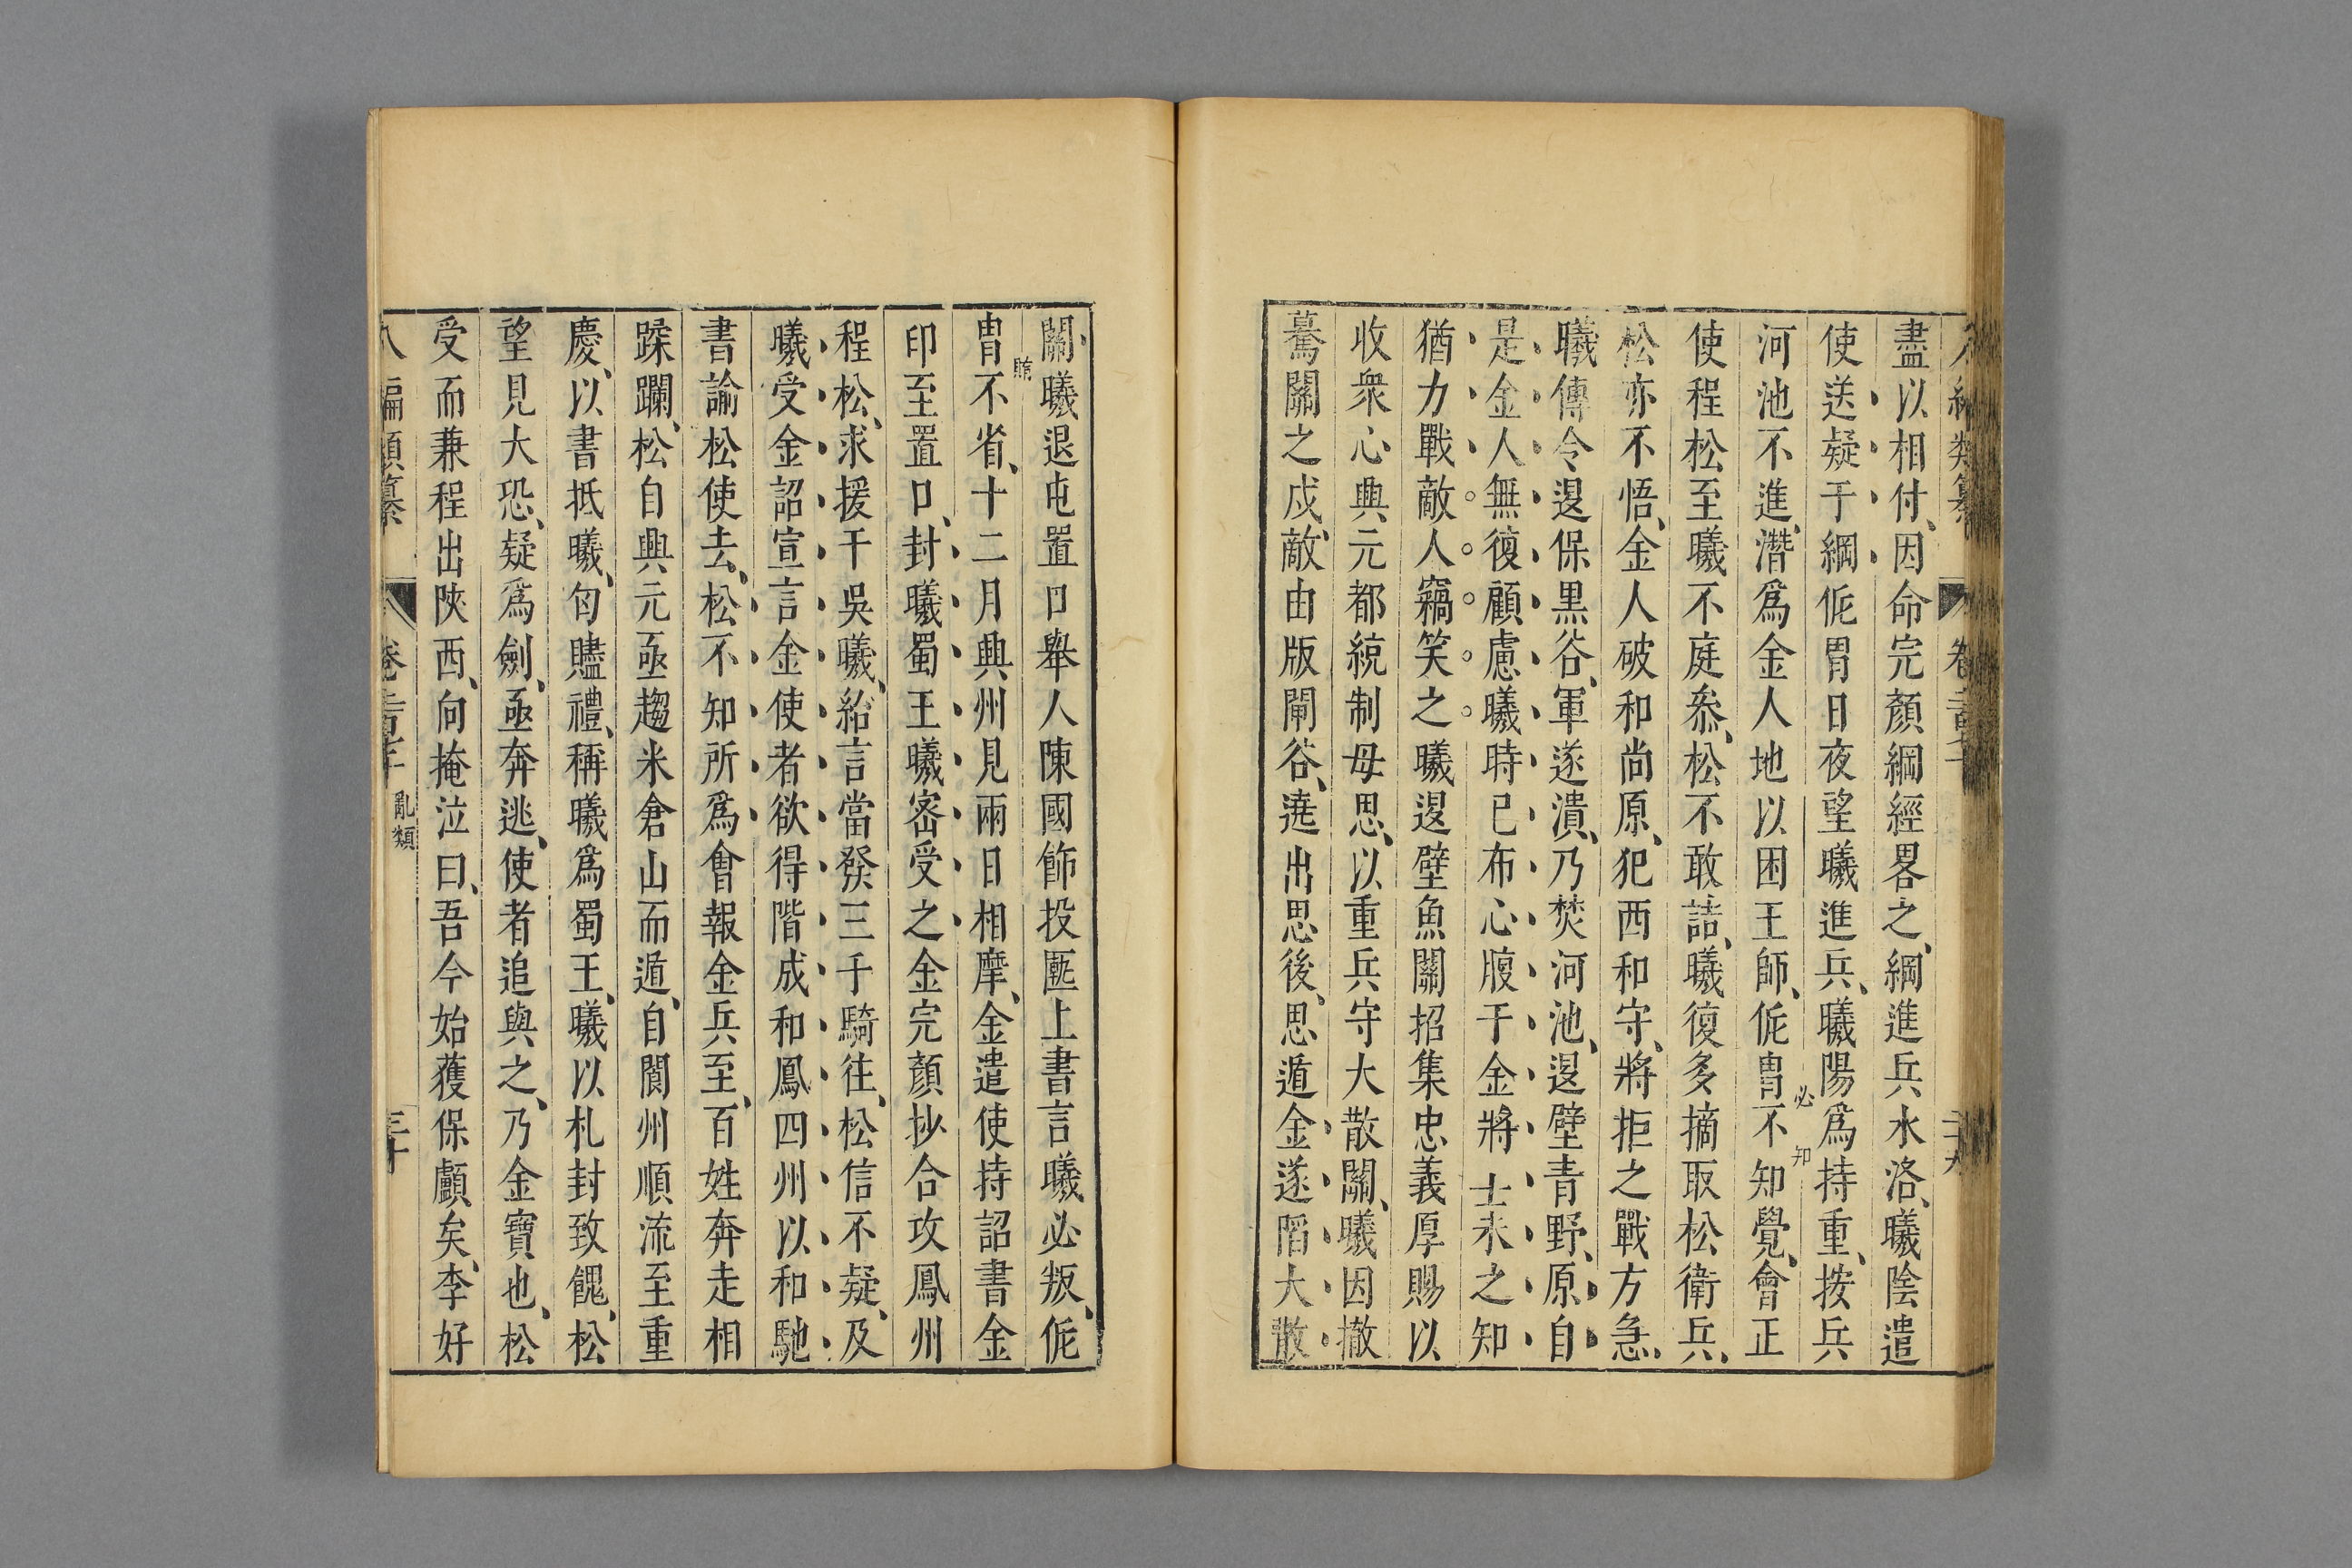 盡以相付、因命完顏綱經畧之、綱進兵水洛、曦陰遣
使送疑于綱侂胃日夜望曦進兵、曦陽爲持重、按兵
河池不進、潛爲金人地以困王師、侂胄不知覺、會正
必知
使程松至曦不庭叅、松不敢詰、曦復多摘取松衛兵、
松亦不悟、金人破和尚原、犯西和守、將拒之戰方急、
曦傳令退保黒谷、軍遂潰、乃焚河池、退壁青野、原自
是金人無復顧慮曦時已布心腹于金將士未之知
猶力戰敵人竊笑之曦退壁魚關招集忠義厚賜以
收衆心興元都統制毋思、以重兵守大散關、曦因撤
驀關之戍、敵由版閘谷、遶出思後、思遁金遂陷大散
關、曦退屯罝口舉人陳國飾投匭上書言曦必叛、侂
胄不省、十二月興州見兩日相摩、金遣使持詔書金
印至罝口、封曦蜀王曦宻受之金完顏抄合攻鳳州
程松、求援于吳曦、紿言當發三千騎往、松信不疑、及
曦受金詔宣言金使者欲得階成和鳳四州以和馳
書諭松使去、松不知所爲會報金兵至、百姓奔走相
蹂躙、松自興元亟趨米倉山而遁、自閬州順流至重
慶、以書抵曦、匄贐禮、稱曦爲蜀王、曦以札封致餽、松
望見大恐、疑爲劍、亟奔逃、使者追與之、乃金寶也、松
受而兼程出陝西、向掩泣曰、吾今始獲保顱矣、李好
八編類纂 卷 亂類 三十